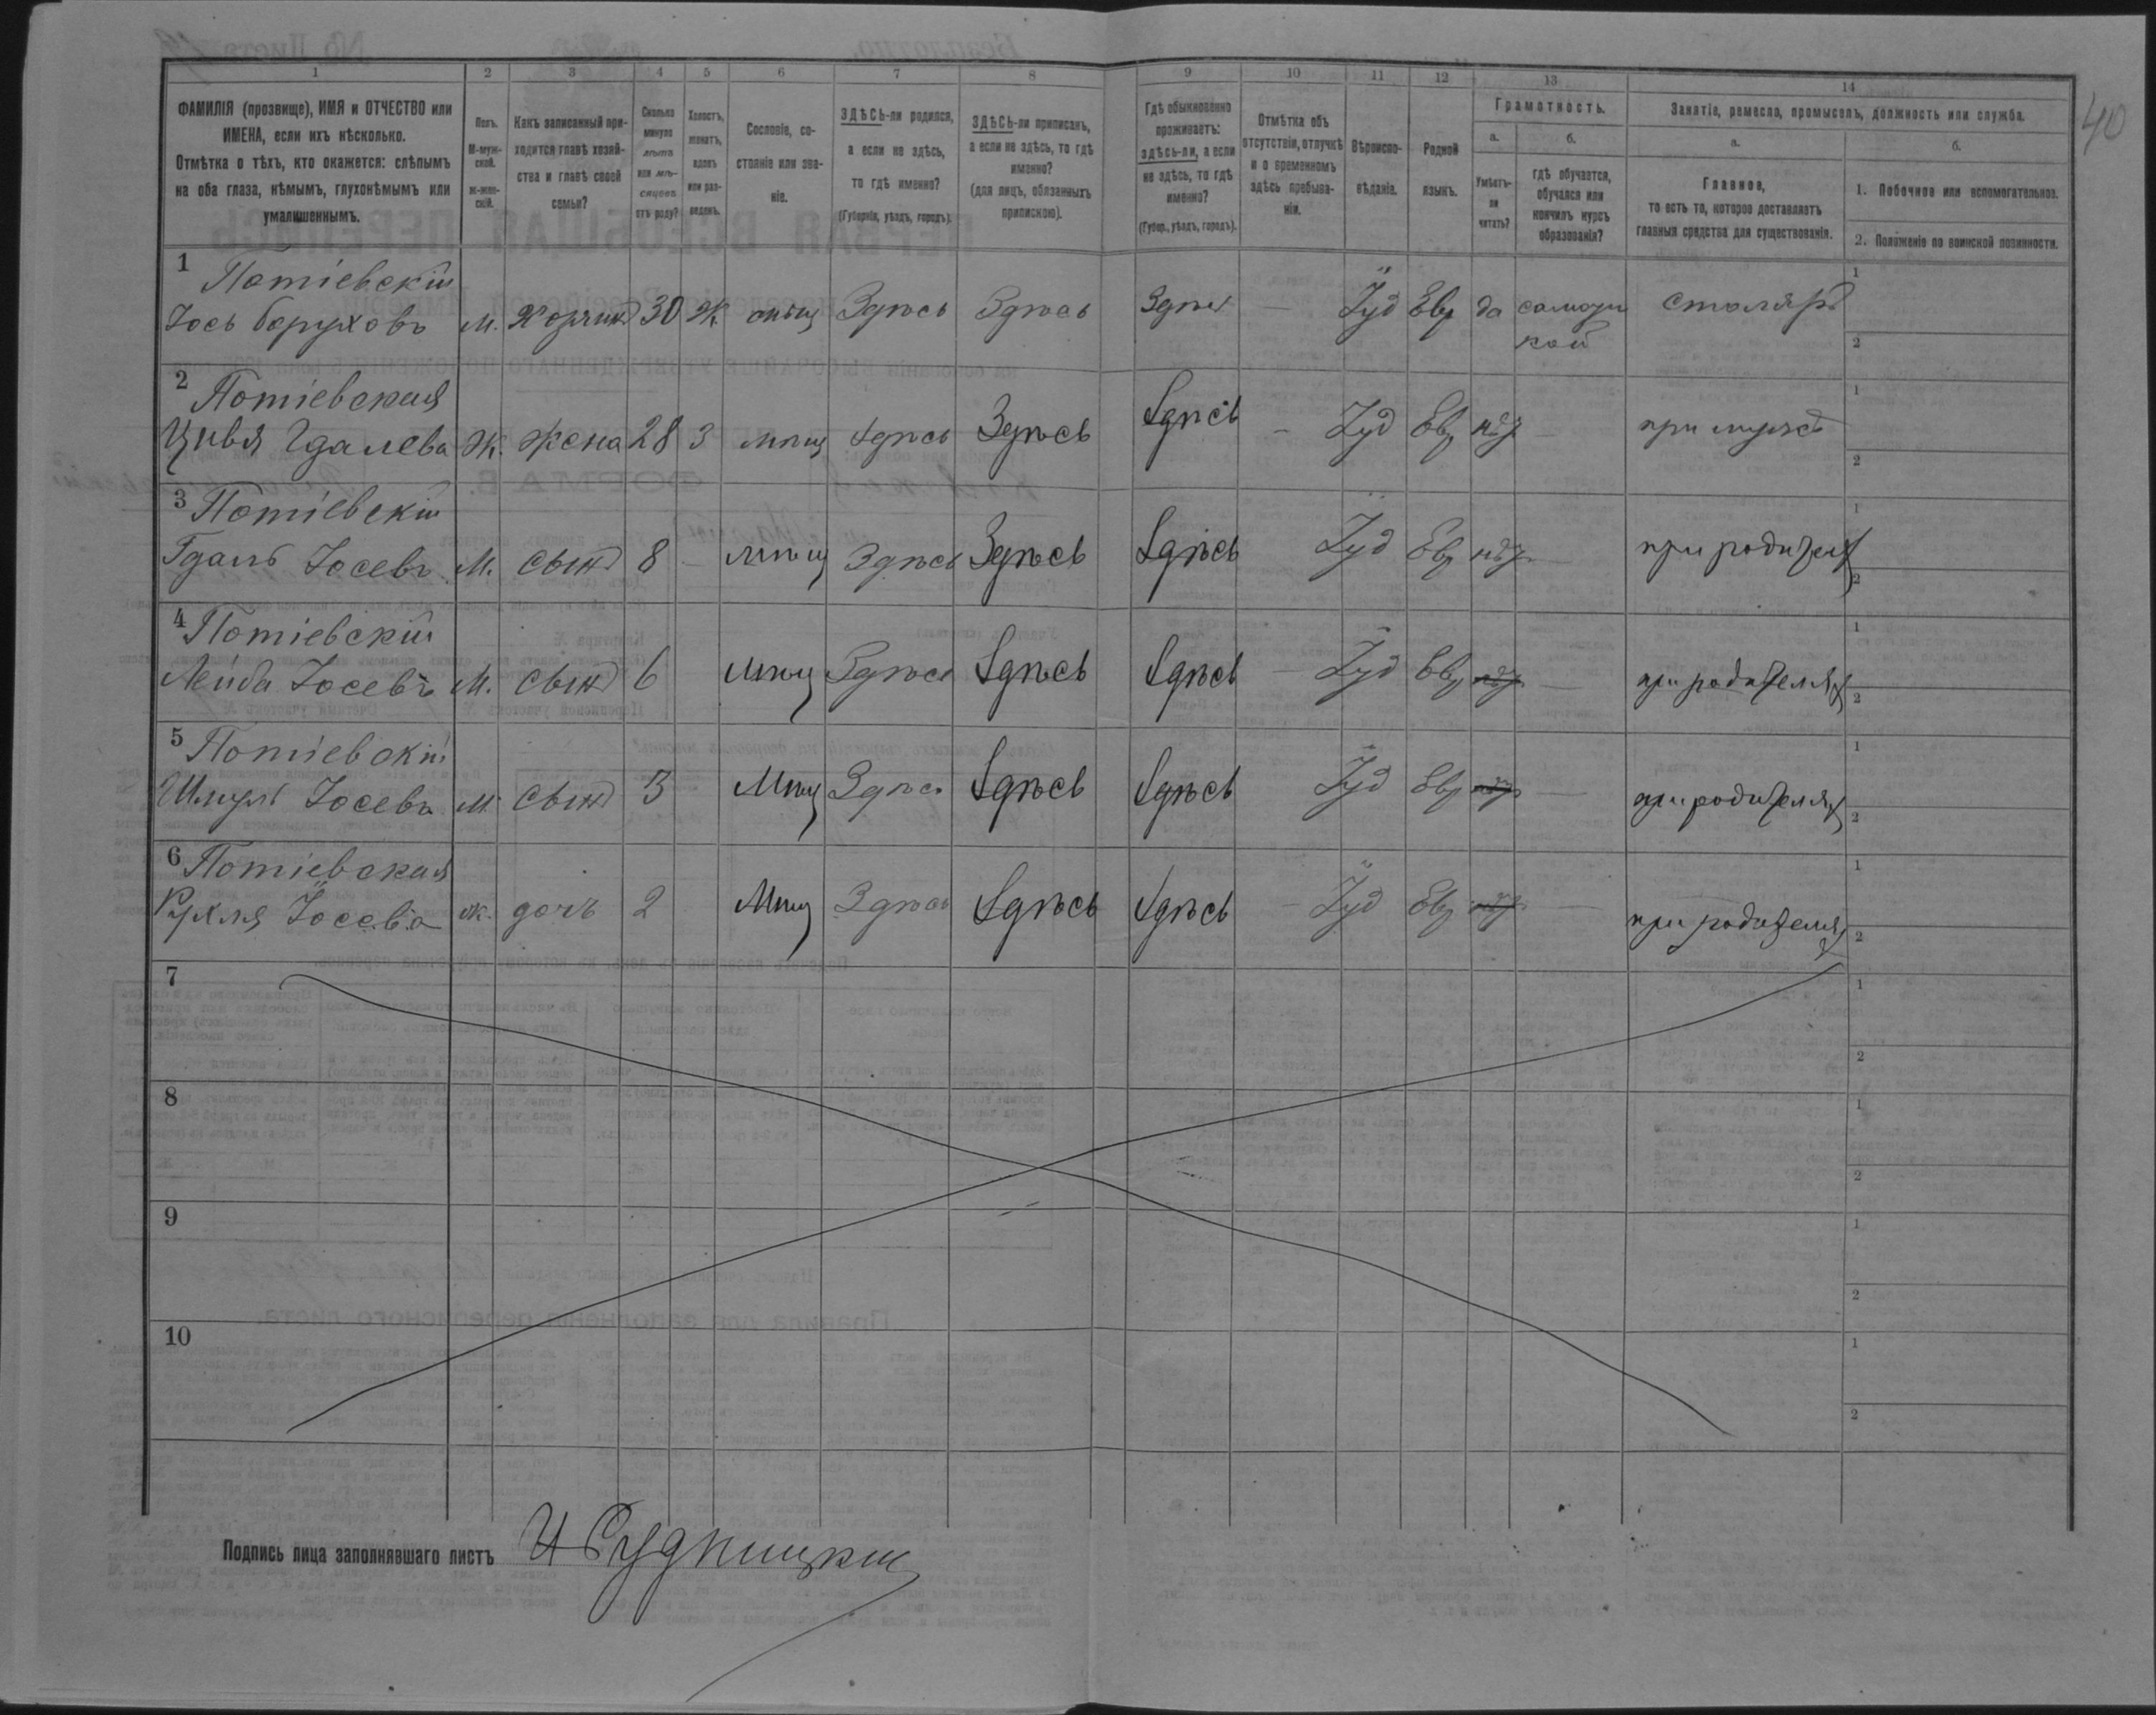 1 2 3 4 5 6 7 8 9 10 11 12 13 14
ФАМИЛІЯ (прозвище), ИМЯ и ОТЧЕСТВО или
ИМЕНА, если ихъ нѣсколько.
Отмѣтка о тѣхъ, кто окажется: слѣпымъ
на оба глаза, нѣмымъ, глухонѣмымъ или
умалишеннымъ.
Полъ.
М-муж-
ской.
ж-жен-
скій.
Какъ записанный при-
ходится главѣ хозяй-
ства и главѣ своей
семьи?
Сколько
минуло
лѣтъ
или мѣ-
сяцевъ
отъ роду?
Холостъ,
женатъ,
вдовъ
или раз-
веденъ.
Сословіе, со-
стояніе или зва-
ніе.
ЗДѢСЬ-ли родился,
а если не здѣсь,
то гдѣ именно?
(Губернія, уѣздъ, городъ).
ЗДѢСЬ-ли приписанъ,
а если не здѣсь, то гдѣ
именно?
(для лицъ, обязанныхъ
припискою).
Гдѣ обыкновенно
проживаетъ:
здѣсь-ли, а если
не здѣсь, то гдѣ
именно?
(Губер., уѣздъ, городъ).
Отмѣтка объ
отсутствіи, отлучкѣ
и о временномъ
здѣсь пребыва-
ніи.
Вѣроиспо-
вѣданіе.
Родной
языкъ.
Грамотность.
а.
Умѣетъ-
ли
читать?
б.
гдѣ обучается,
обучался или
кончилъ курсъ
образованія?
Занятіе, ремесло, промыселъ, должность или служба.
а.
Главное,
то есть то, которое доставляетъ
главныя средства для существованія.
б.
1. Побочное или вспомогательное.
2. Положеніе по воинской повинности.
40
1 Потіевскій
Іось Боруховъ м. Хозяинъ 30 Ж мѣщ Здѣсь Здѣсь Здѣсь — Іуд Евр да самоуч
кой столяръ 1
2
2 Потіевская
Цивя Гдалева Ж. жена 28 З мѣщ Здѣсь Здѣсь Здѣсь — Іуд Евр нѣт — при мужѣ 1
2
3 Потіевскій
Гдаль Іосевъ М. сынъ 8 — мѣщ Здѣсь Здѣсь Здѣсь Іуд Евр нѣт — при родителях 1
2
4 Потіевскій
Лейба Іосевъ М. сынъ 6 мѣщ Здѣсь Здѣсь Здѣсь — Іуд Евр нѣт — при родителях 1
2
5 Потіевскій
Шмуль Іосевъ М сынъ 3 Мѣщ Здѣсь Здѣсь Здѣсь Іуд Евр нѣт — при родителях 1
2
6 Потіевская
Рухля Іосева ж. дочь 2 Мѣщ Здѣсь Здѣсь Здѣсь — Іуд Евр нѣт — при родителях 1
2
7 1
2
8 1
2
9 1
2
10 1
2
Подпись лица заполнявшаго листъ И Рудницкій